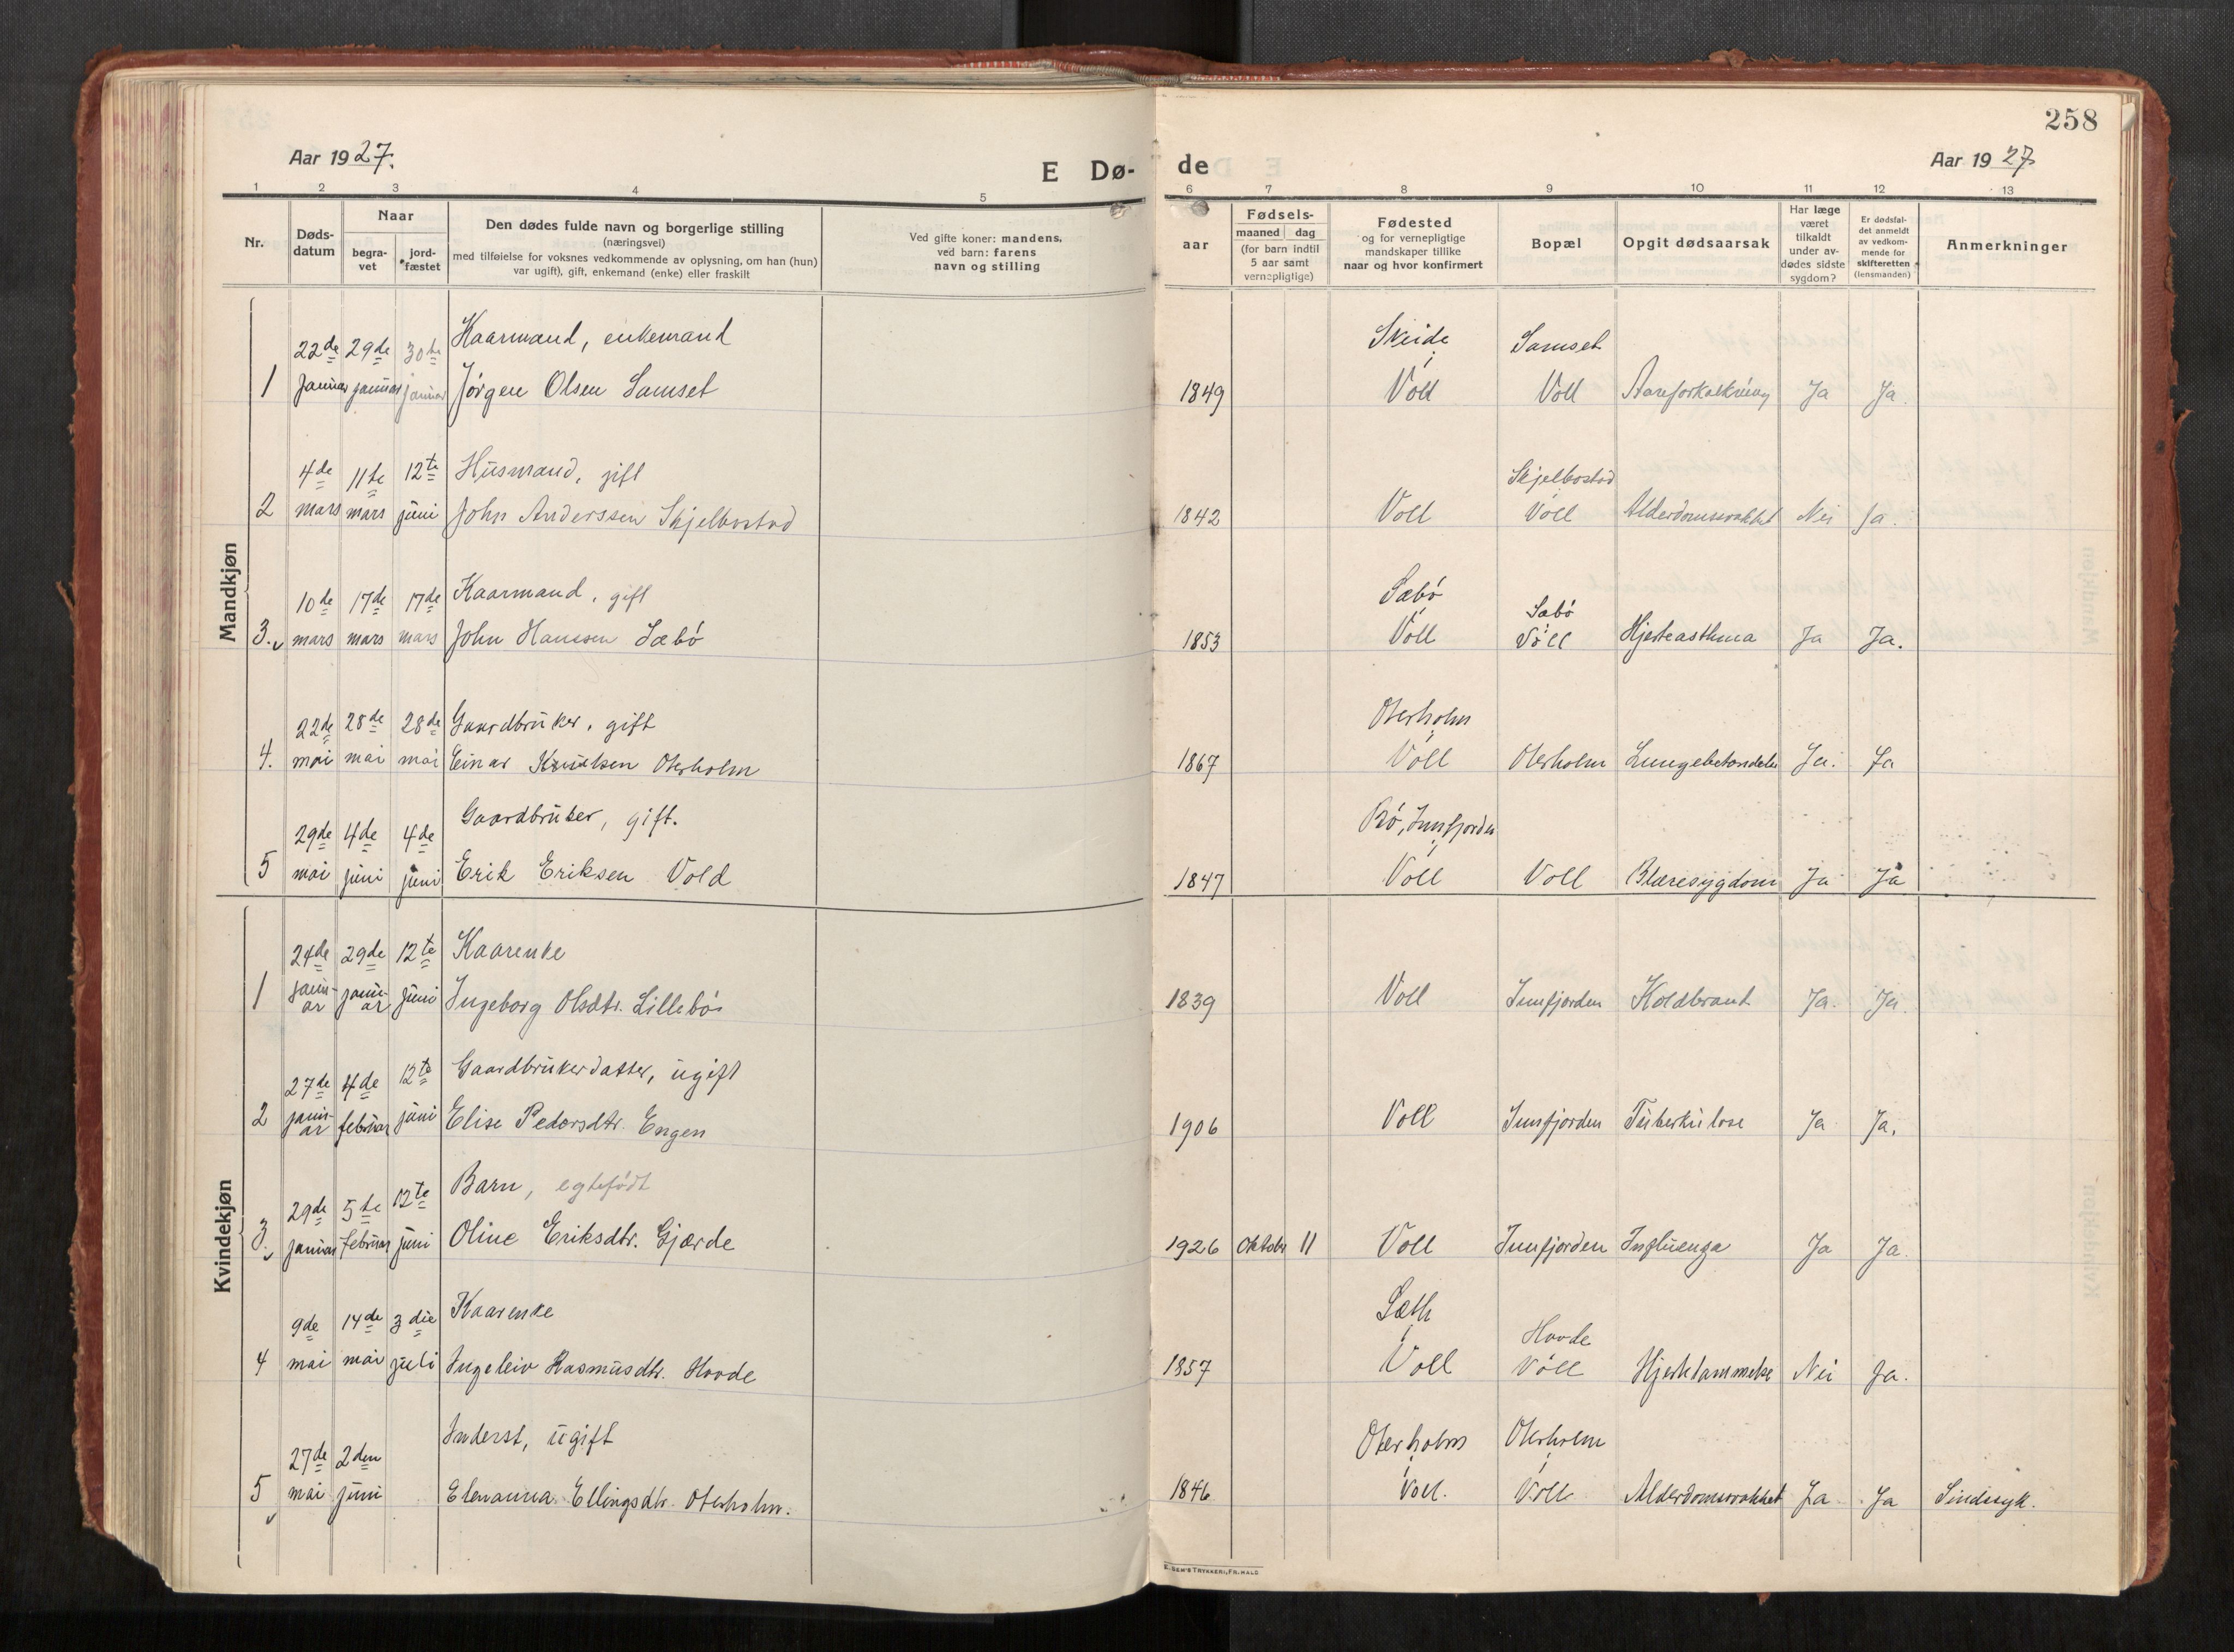 258
Aar 1927.
E Dø-
de
Aar 1927
1 2 3 4 5
6 7 8 9 10 11 12 13
Nr.
Døds-
datum
Naar
begra-
vet
jord-
fæstet
Den dødes fulde navn og borgerlige stilling
(næringsvei)
med tilføielse for voksnes vedkommende av oplysning, om han (hun)
var ugift), gift, enkemand (enke) eller fraskilt
Ved gifte koner: mandens,
ved barn: farens
navn og stilling
aar
Fødsels-
maaned dag
(for barn indtil
5 aar samt
vernepligtige)
Fødested
og for vernepligtige
mandskaper tillike
naar og hvor konfirmert
Bopæl
Opgit dødsaarsak
Har læge
været
tilkaldt
under av-
dødes sidste
sygdom?
Er dødsfal-
det anmeldt
av vedkom-
mende for
skifteretten
(lensmanden)
Anmerkninger
Mandkjøn
22de 29de 30te Kaarmand, enkemand Skeide Samset
1 Januar januar januar Jørgen Olsen Samset 1849 Voll Voll Aareforkalkning Ja Ja.
4de 11te 12te Husmand, gift Skjelbostad
2 mars mars juni John Anderssen Skjelbostad 1842 Voll Voll Alderdomssvakhet Nei Ja.
10de 17de 17de Kaarmand, gift Sæbø Sæbø
3. mars mars mars John Hanssen Sæbø 1853 Voll Voll Hjerteasthma Ja Ja.
22de 28de 28de Gaardbruker, gift Oterholm
4. mai mai mai Einar Knutsen Oterholm 1867 Voll Oterholm Lungebetændelse Ja. Ja
29de 4de 4de Gaardbruker, gift. Bø, Innfjorden
5 mai juni juni Erik Eriksen Vold 1847 Voll Voll Blæresygdom Ja Ja
Kvindekjøn
24de 29de 12te Kaarenke
1 januar januar juni Ingeborg Olsdtr. Lillebø 1839 Voll Innfjorden Koldbrand Ja. Ja.
27de 4de 12te Gaardbrukerdatter, ugift
2 januar februar juni Elise Pedersdtr. Engen 1906 Voll Innfjorden Tuberkulose Ja Ja.
29de 5te 12te Barn, egtefødt
3. januar februar juni Oline Eriksdtr. Gjærde 1926 Oktobr 11 Voll Innfjorden Influenza Ja Ja.
9de 14de 3die Kaarenke Sæth Hovde
4 mai mai juli Ingeleiv Rasmusdtr. Hovde 1857 Voll Voll Hjertelammelse Nei Ja.
27de 2den Inderst, ugift Oterholm Oterholm
5 mai juni Elenanna Ellingsdtr. Oterholm. 1846 Voll. Voll Alderdomssvakhet Ja Ja Sindssyk.
E. SEM'S TRYKKERI, FR.HALD